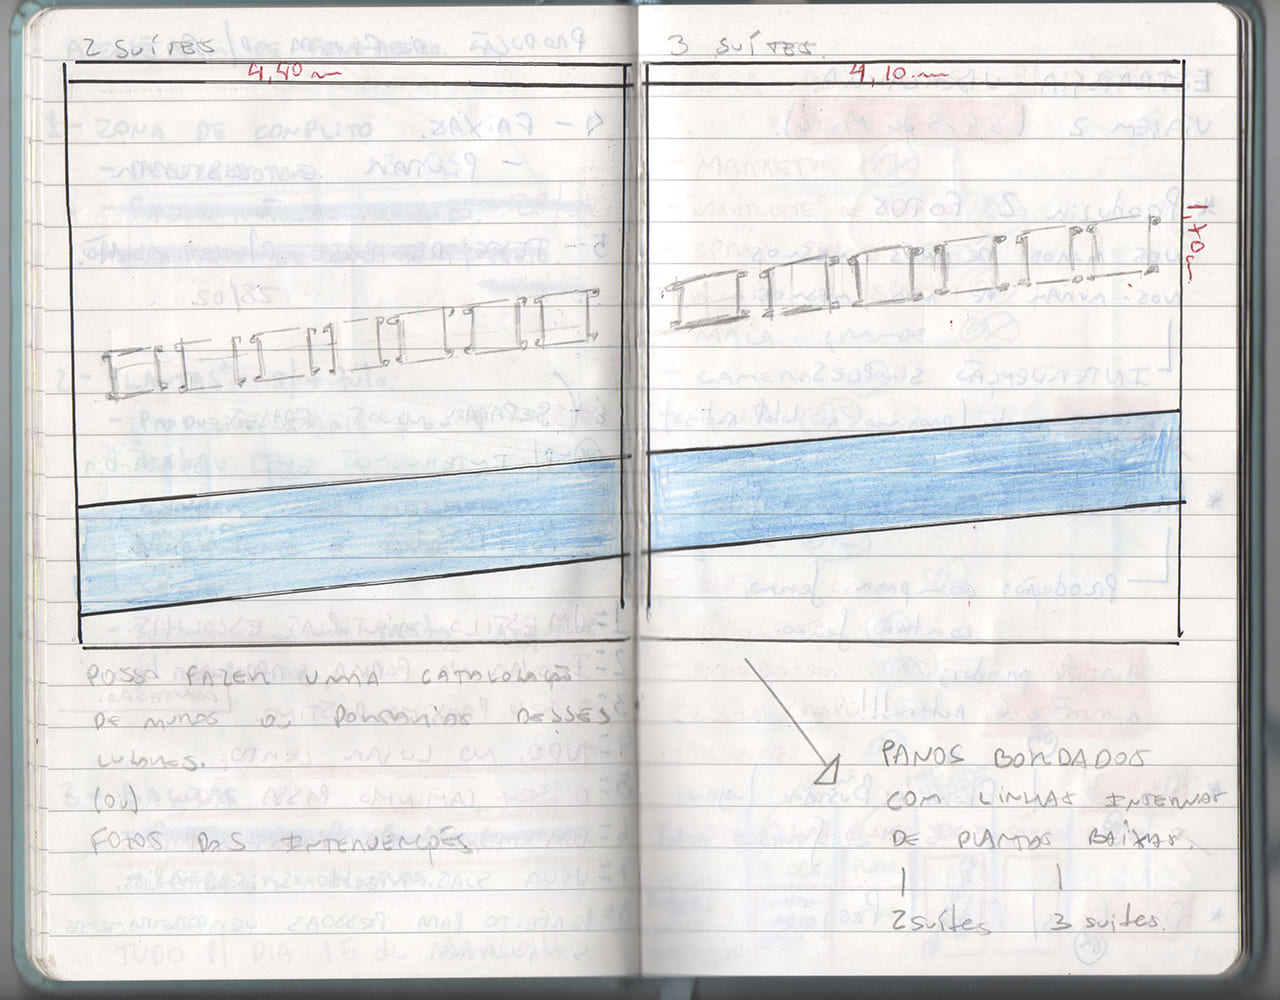 2 SUÍTES
4,40 m
POSSO FAZER UMA CATALOGAÇÃO
DE MUROS OU PORTARIAS DESSES
LUGARES.
(OU)
FOTOS DAS INTERVENÇÕES.
3 SUÍTES
4,10 m
1,70 m
PANOS BORDADOS
COM LINHAS INTERNAS
DE PLANTAS BAIXAS.
2 suítes
3 suítes.